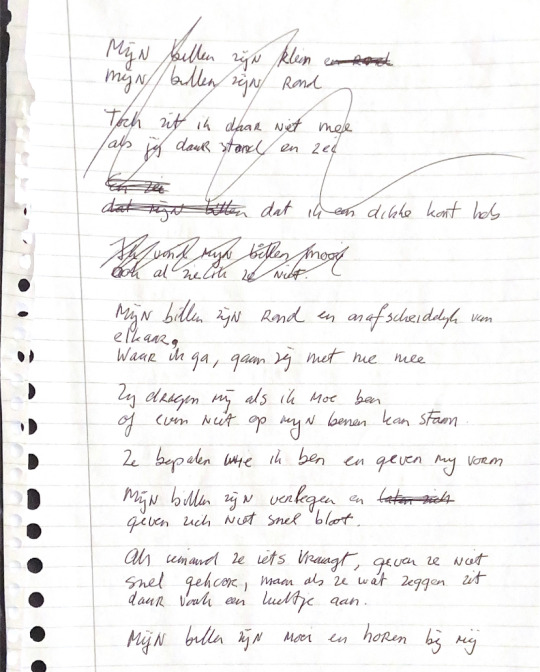 Mijn billen zijn klein en rond
Mijn billen zijn rond
Toch zit ik daar niet mee
als jij daar stond en zei
En zei
dat mijn billen dat ik een dikke kont heb
Ik vond mijn billen mooi
ook al zie ik ze niet.
Mijn billen zijn rond en onafscheidelijk van
elkaar,
Waar ik ga, gaan zij met me mee
Zij dragen mij als ik moe ben
of even niet op mijn benen kan staan.
Ze bepalen wie ik ben en geven mij vorm
Mijn billen zijn verlegen en laten zich
geven zich niet snel bloot.
Als iemand ze iets vraagt, geven ze niet
snel gehoor, maar als ze wat zeggen zit
daar vaak een luchtje aan.
Mijn billen zijn mooi en horen bij mij